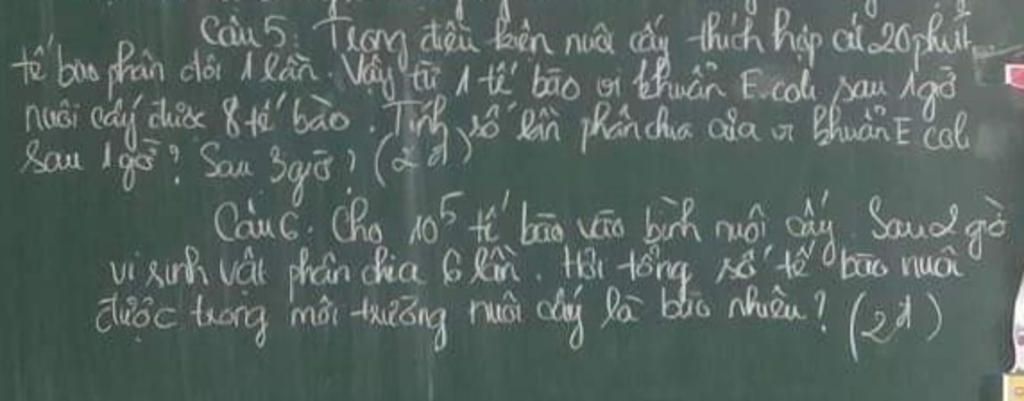 Câu 5. Trong điều kiện nuôi cấy thích hợp cứ 20 phút
tế bào phân đôi 1 lần. Vậy từ 1 tế bào vi khuẩn E.coli sau 1 giờ
nuôi cấy được 8 tế bào. Tính số lần phân chia của vi khuẩn E coli
sau 1 giờ? Sau 3 giờ? (2 đ)
Câu 6. Cho 10⁵ tế bào vào bình nuôi cấy. Sau 2 giờ
vi sinh vật phân chia 6 lần. Hỏi tổng số tế bào nuôi
được trong môi trường nuôi cấy là bao nhiêu? (2đ)